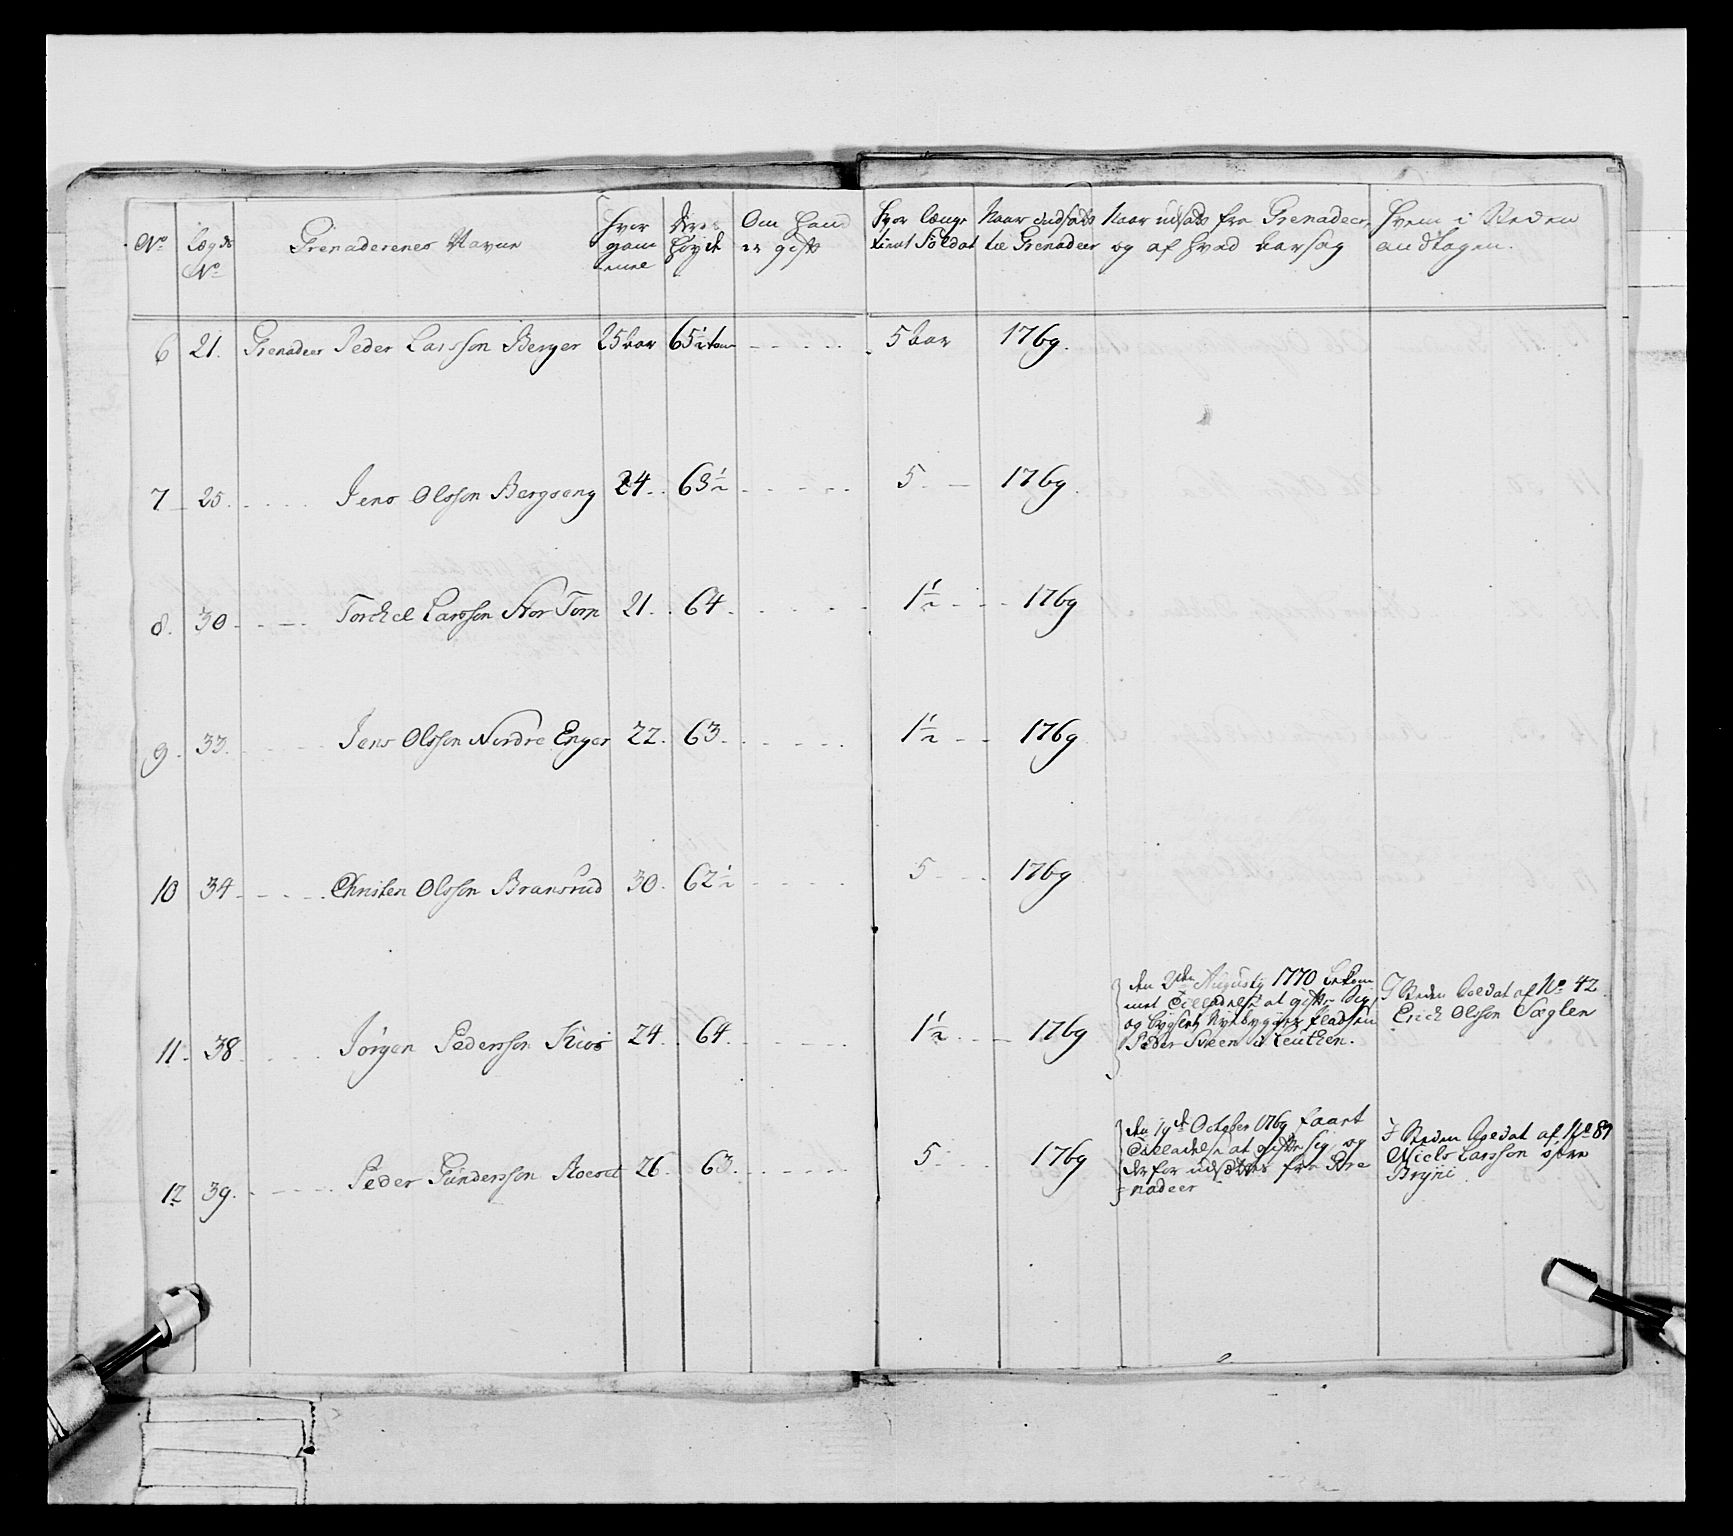 No
Lægds No
Grenaderenes Navne
Hvor gammel
Deres Høyde
Om Hand er gift
Hvor længe tient Soldat
Naar indsadt til Grenadeer
Naar udsadt fra Grenadeer, og af hvad Aarsag
Hvem i Steden andtagen.
6 21. Grenadeer Peder Larsson Berger 25 aar 65½ tom - - - - - 5 aar 1769.
7 25. - - - - Jens Olsson Bergseng 24. 63½ - - - - - 5. - 1769.
8. 30 - - - - Torchel Larsson Stor Torp 21. 64. - - - - - 1½ - - - 1769
9. 33. - - - - Jens Olsson Nordre Enger 22. 63. - - - - - 1½ - - 1769
10 34 - - - - Christen Olsson Bransrud 30. 62½ - - - - - 5 - - - 1769
11. 38. - - - - Jörgen Pedersson Kios 24. 64. - - - - - 1½ - - - 1769
den 2den Augusty 1770 bekom-
met Tilladelse at gifte sig,
og bygsent Nyebygger Pladsen
Peder Sveen i
I Steden Soldat af No 42
Erich Olsson Sæglen
12 39. - - - - Peder Gundersson 26. 63. - - - - - 5 - - - 1769
den 19de October 1769 faaet
Tilladelse at gifte sig, og
derfor udsættes fra Gre
=nadeer
I Steden Soldat af No 89
Niels Larsson øfre
Bryni